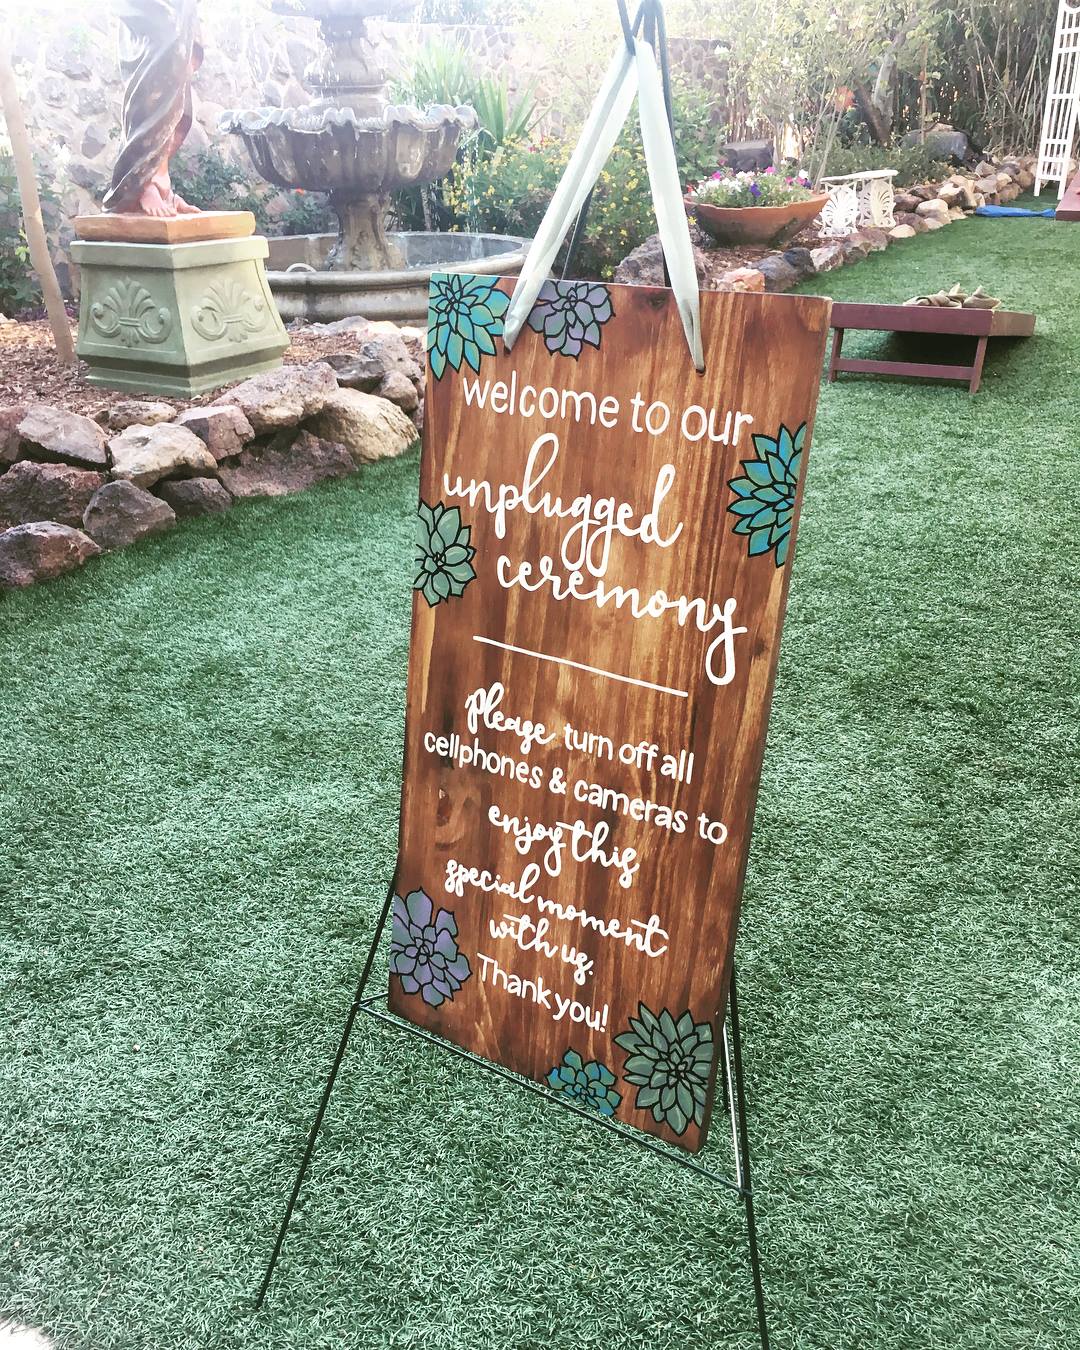 welcome to our
unplugged
ceremony
Please turn off all
cellphones & cameras to
enjoy this
special moment
with us.
Thank you!